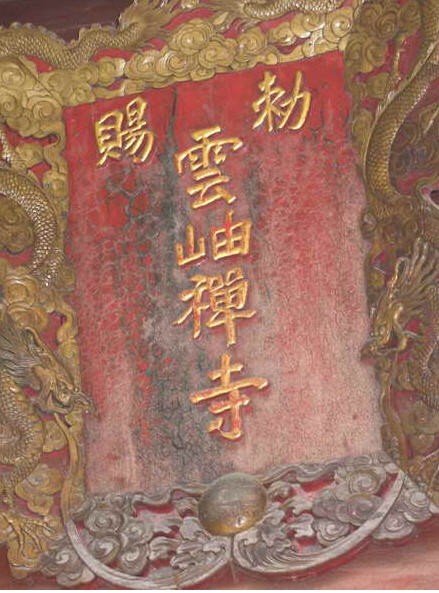 勅賜
雲岫禪寺